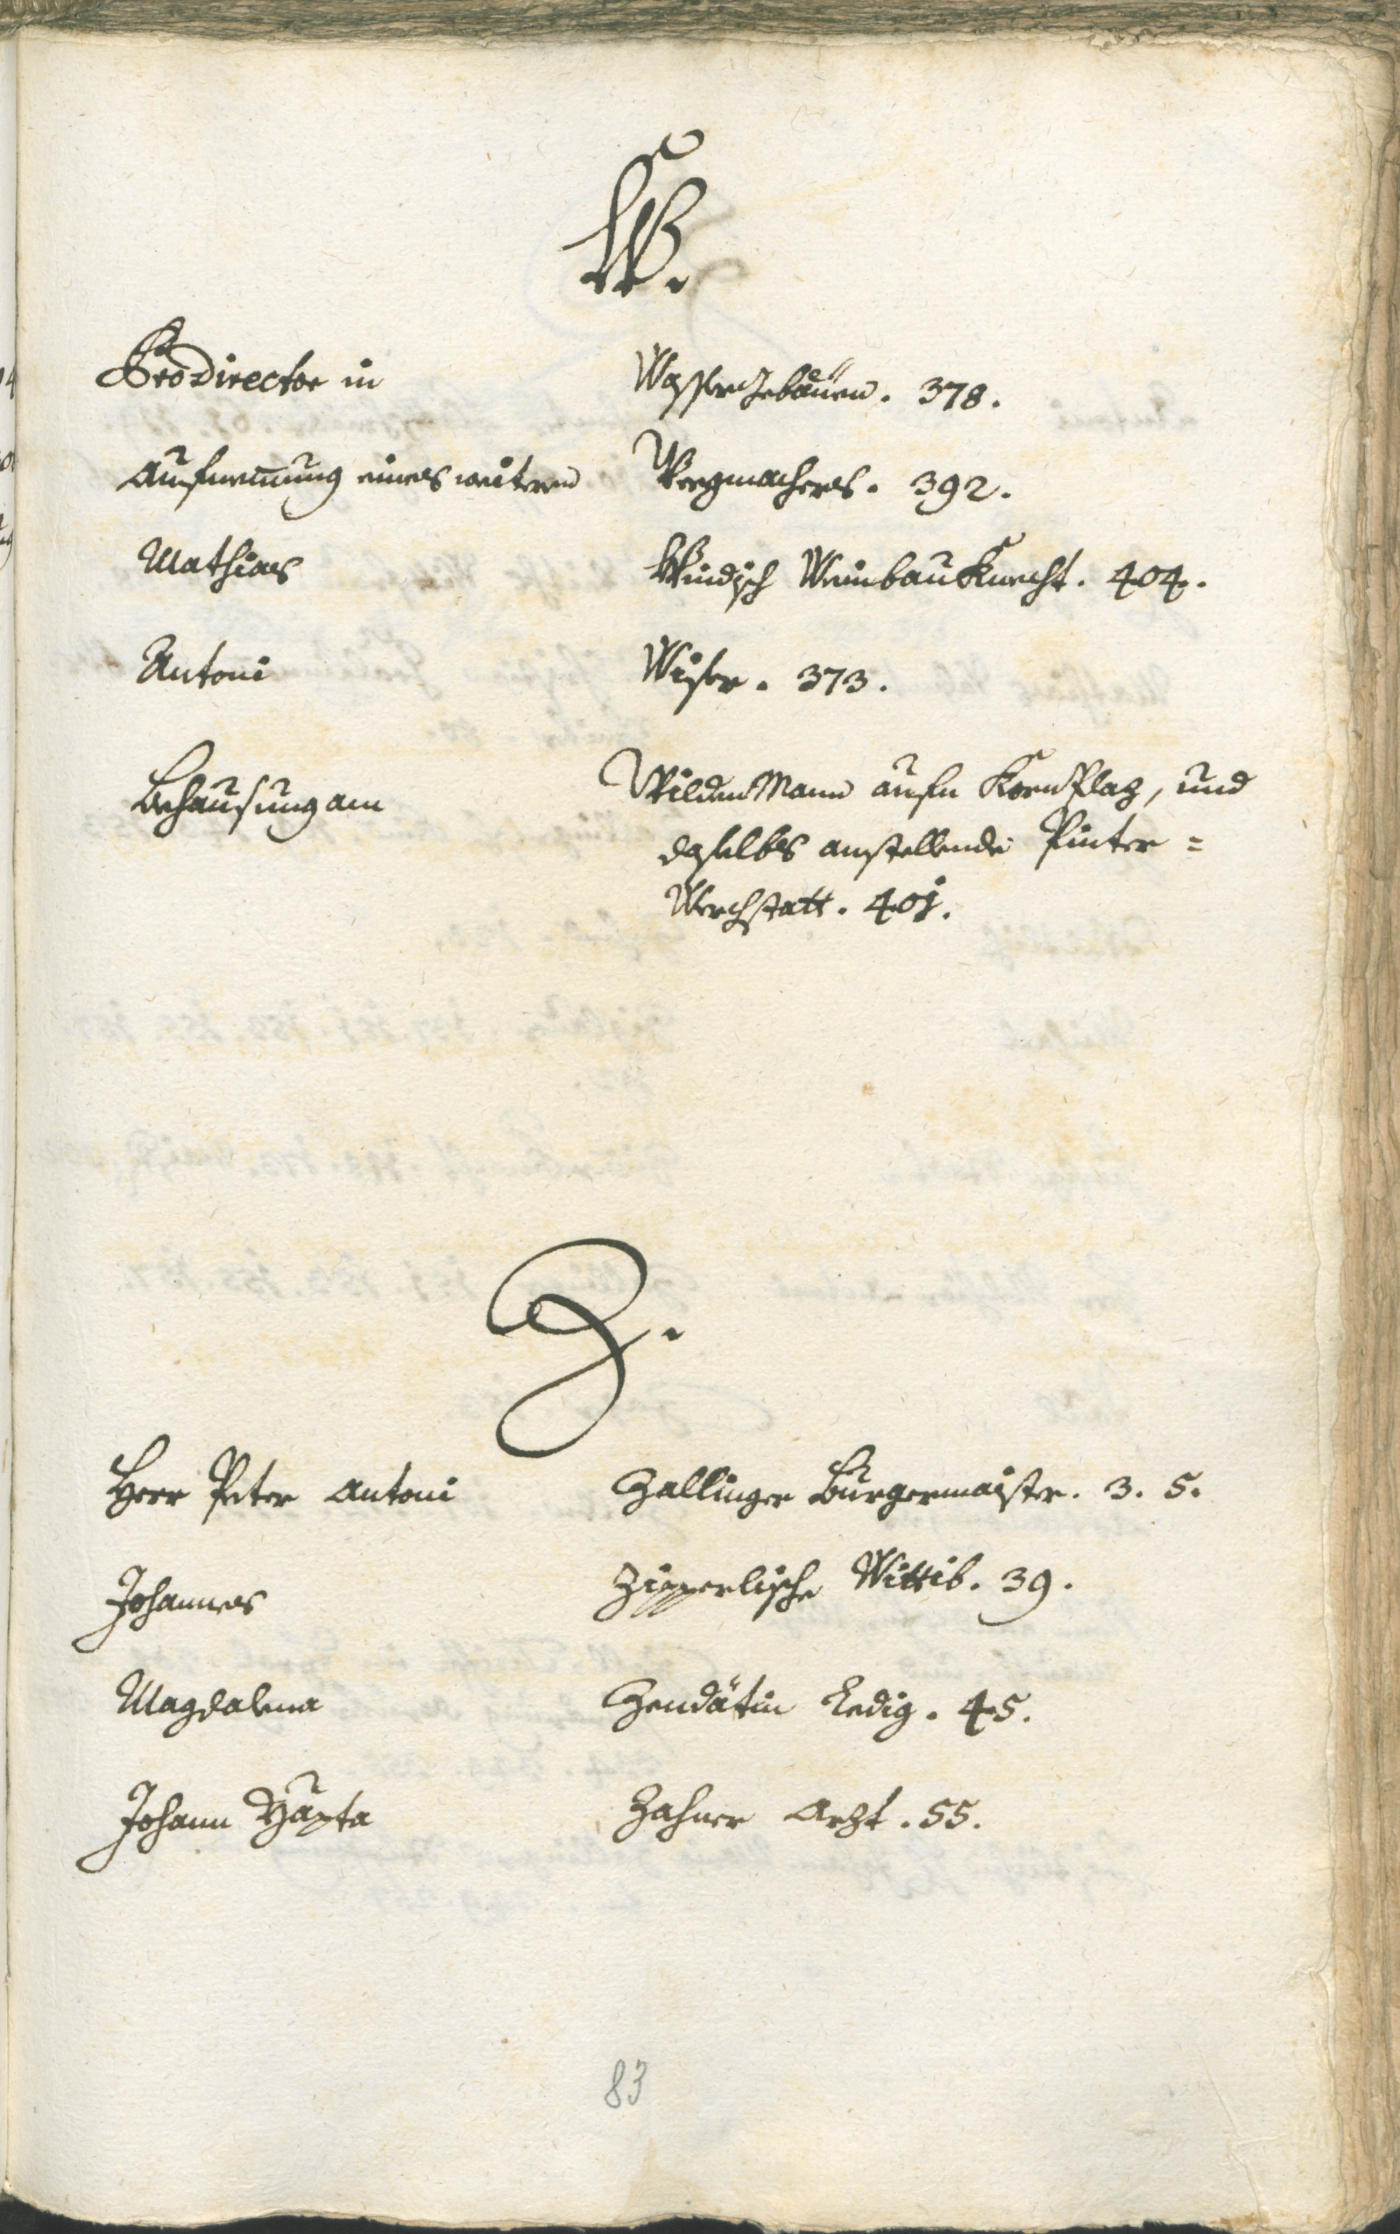 W.
Prodirector in Wasser Gebäuen. 378.
Aufnemung eines weitern Weegmachers. 392.
Mathias Windisch Weinbau Knecht. 404.
Antoni Wiser. 373.
Behausung am Wilden Mann aufn Korn Plaz, und
daselbs anstellende Pinter=
Werchstatt. 401.
Z.
Herr Peter Antoni Zallinger Burgermaister. 3. 5.
Johannes Zipperlische Wittib. 39.
Magdalena Zendätin Ledig. 45.
Johann Bapta Zahner Arzt. 55.
83